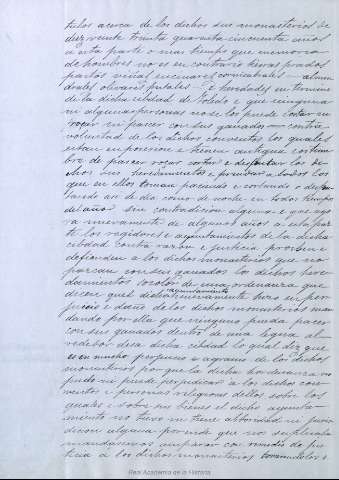 tulos acerca de los dichos sus monasterios de
diez veinte treinta quarenta cincuenta años
a esta parte o mas tiempo que memoria
de hombres no es en contrario tierras prados
pastos viñas
drales olivares e heredades en termino
de la dicha cibdad de Toledo e que ninguna
ni algunas personas no se los puede cortar ni
roçar ni pacer con sus ganados contra
voluntad de los dichos conventos los quales
estan en posesion e tienen antigua costum
bre de pacer roçar cortar e los de
chos sus heredamientos e prendar a todos los
que en ellos toman paciendo e cortando o
tando asi de dia como de noche en todo tiempo
del año sin contradicion alguna e que ago
ra nuevamente de algunos años a esta par
te los regidores e ayuntamiento de la dicha
cibdad contra razon e justicia
defienden a los dichos monasterios que no
pazcan con sus ganados los dichos here
damientos so color de una ordenanza que
dicen quel dicho ayuntamiento nuevamente hizo en per
juicio e daño de los dichos monasterios man
dando por ella que ninguno pueda pacer
con sus ganados dentro de una legua al
rededor desa dicha cibdad lo qual diz que
es en mucho perjuicio e agravio de los dichos
monasterios porque la dicha hordenanza no
pudo ni puede perjudicar a los dichos con
ventos e personas religiosas dellos sobre los
quales e sobre sus bienes el dicho ayunta
miento no tuvo ni tiene autoridad ni juris
dicion alguna por ende que nos suplicaba
mandasemos amparar con remedio de jus
ticia a los dichos monasterios
Real Academia de la Historia